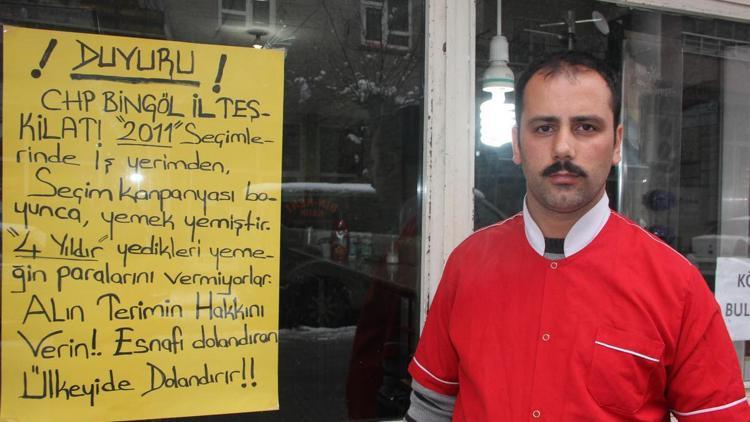 ! DUYURU !
CHP BİNGÖL İL TEŞ-
KİLATI "2011" Seçimle-
rinde İş yerimden,
Seçim Kanpanyası bo-
yunca, yemek yemiştir.
"4 Yıldır" yedikleri yeme-
ğin paralarını vermiyorlar.
ALın Terimin Hakkını
Verin!. Esnafı dolandıran
Ülkeyide Dolandırır!!
KÖ
BUL